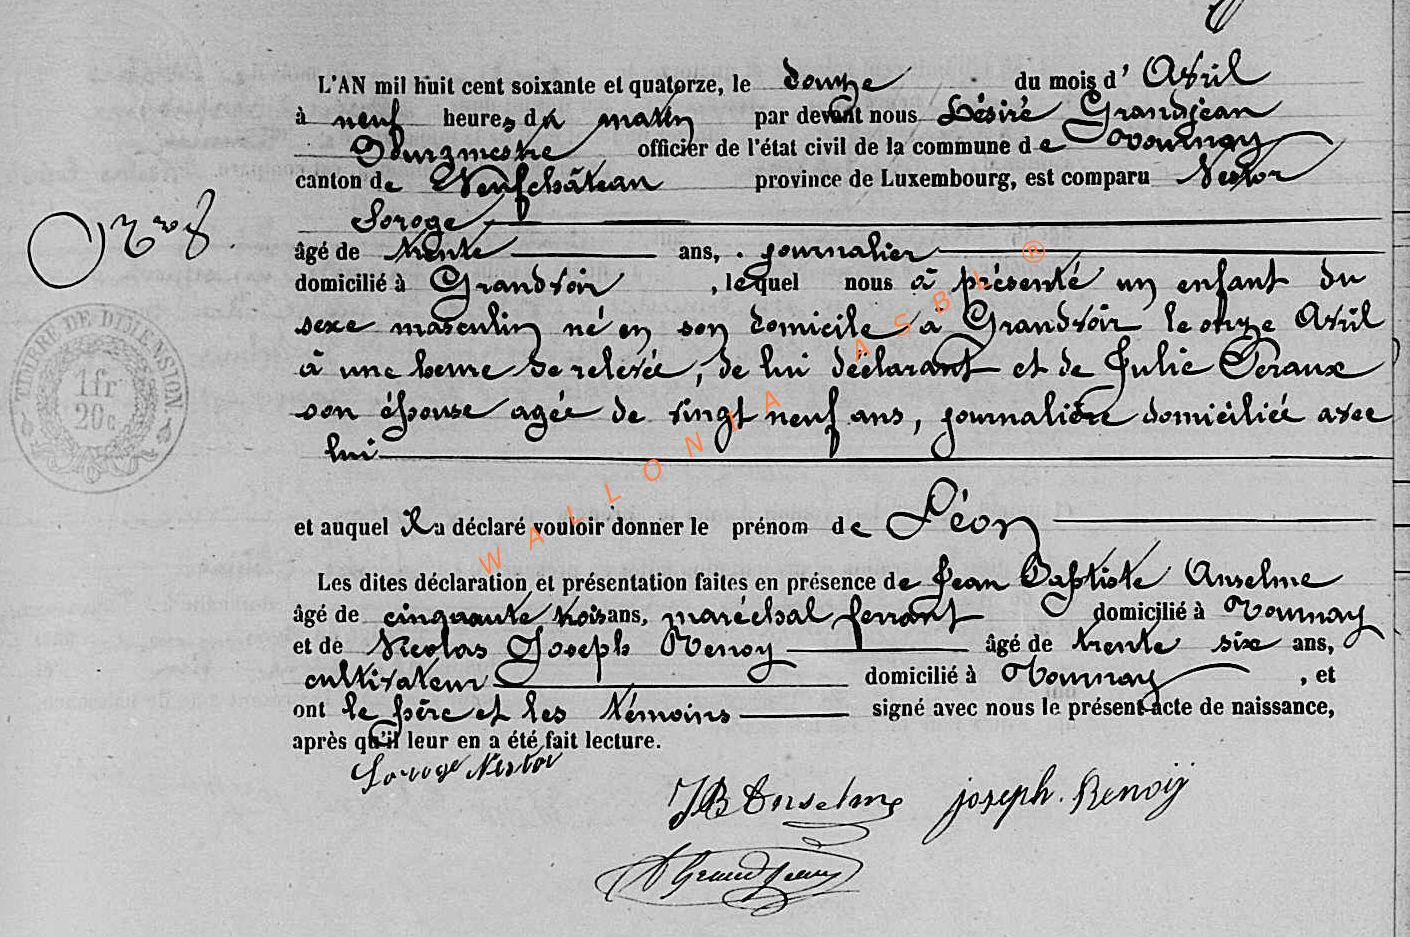 L'AN mil huit cent soixante et quatorze, le douze du mois d' Avril
à neuf heures du matin par devant nous Désiré Grandjean
Bourgmestre officier de l'état civil de la commune de Tournay
canton de Neufchâteau province de Luxembourg, est comparu Nestor
Soroge
âgé de trente ans, journalier
domicilié à Grandvoir, lequel nous a présenté un enfant du
sexe masculin né en son domicile à Grandvoir le onze Avril
à une heure de relevée, de lui déclarant et de Julie Peraux
son épouse agée de vingt neuf ans, journalière domiciliée avec
lui
et auquel Il a déclaré vouloir donner le prénom de Léon
Les dites déclaration et présentation faites en présence de Jean Baptiste Anselme
âgé de cinquante trois ans, maréchal ferrant domicilié à Tournay
et de Nicolas Joseph Renoy âgé de trente six ans,
cultivateur domicilié à Tournay, et
ont le père et les témoins signé avec nous le présent acte de naissance,
après qu'il leur en a été fait lecture.
Soroge Nestor
JB Anselme joseph. Renoÿ
DGrandjean
TIMBRE DE DIMENSION.
1fr
20c
WALLONIA ASBL ®